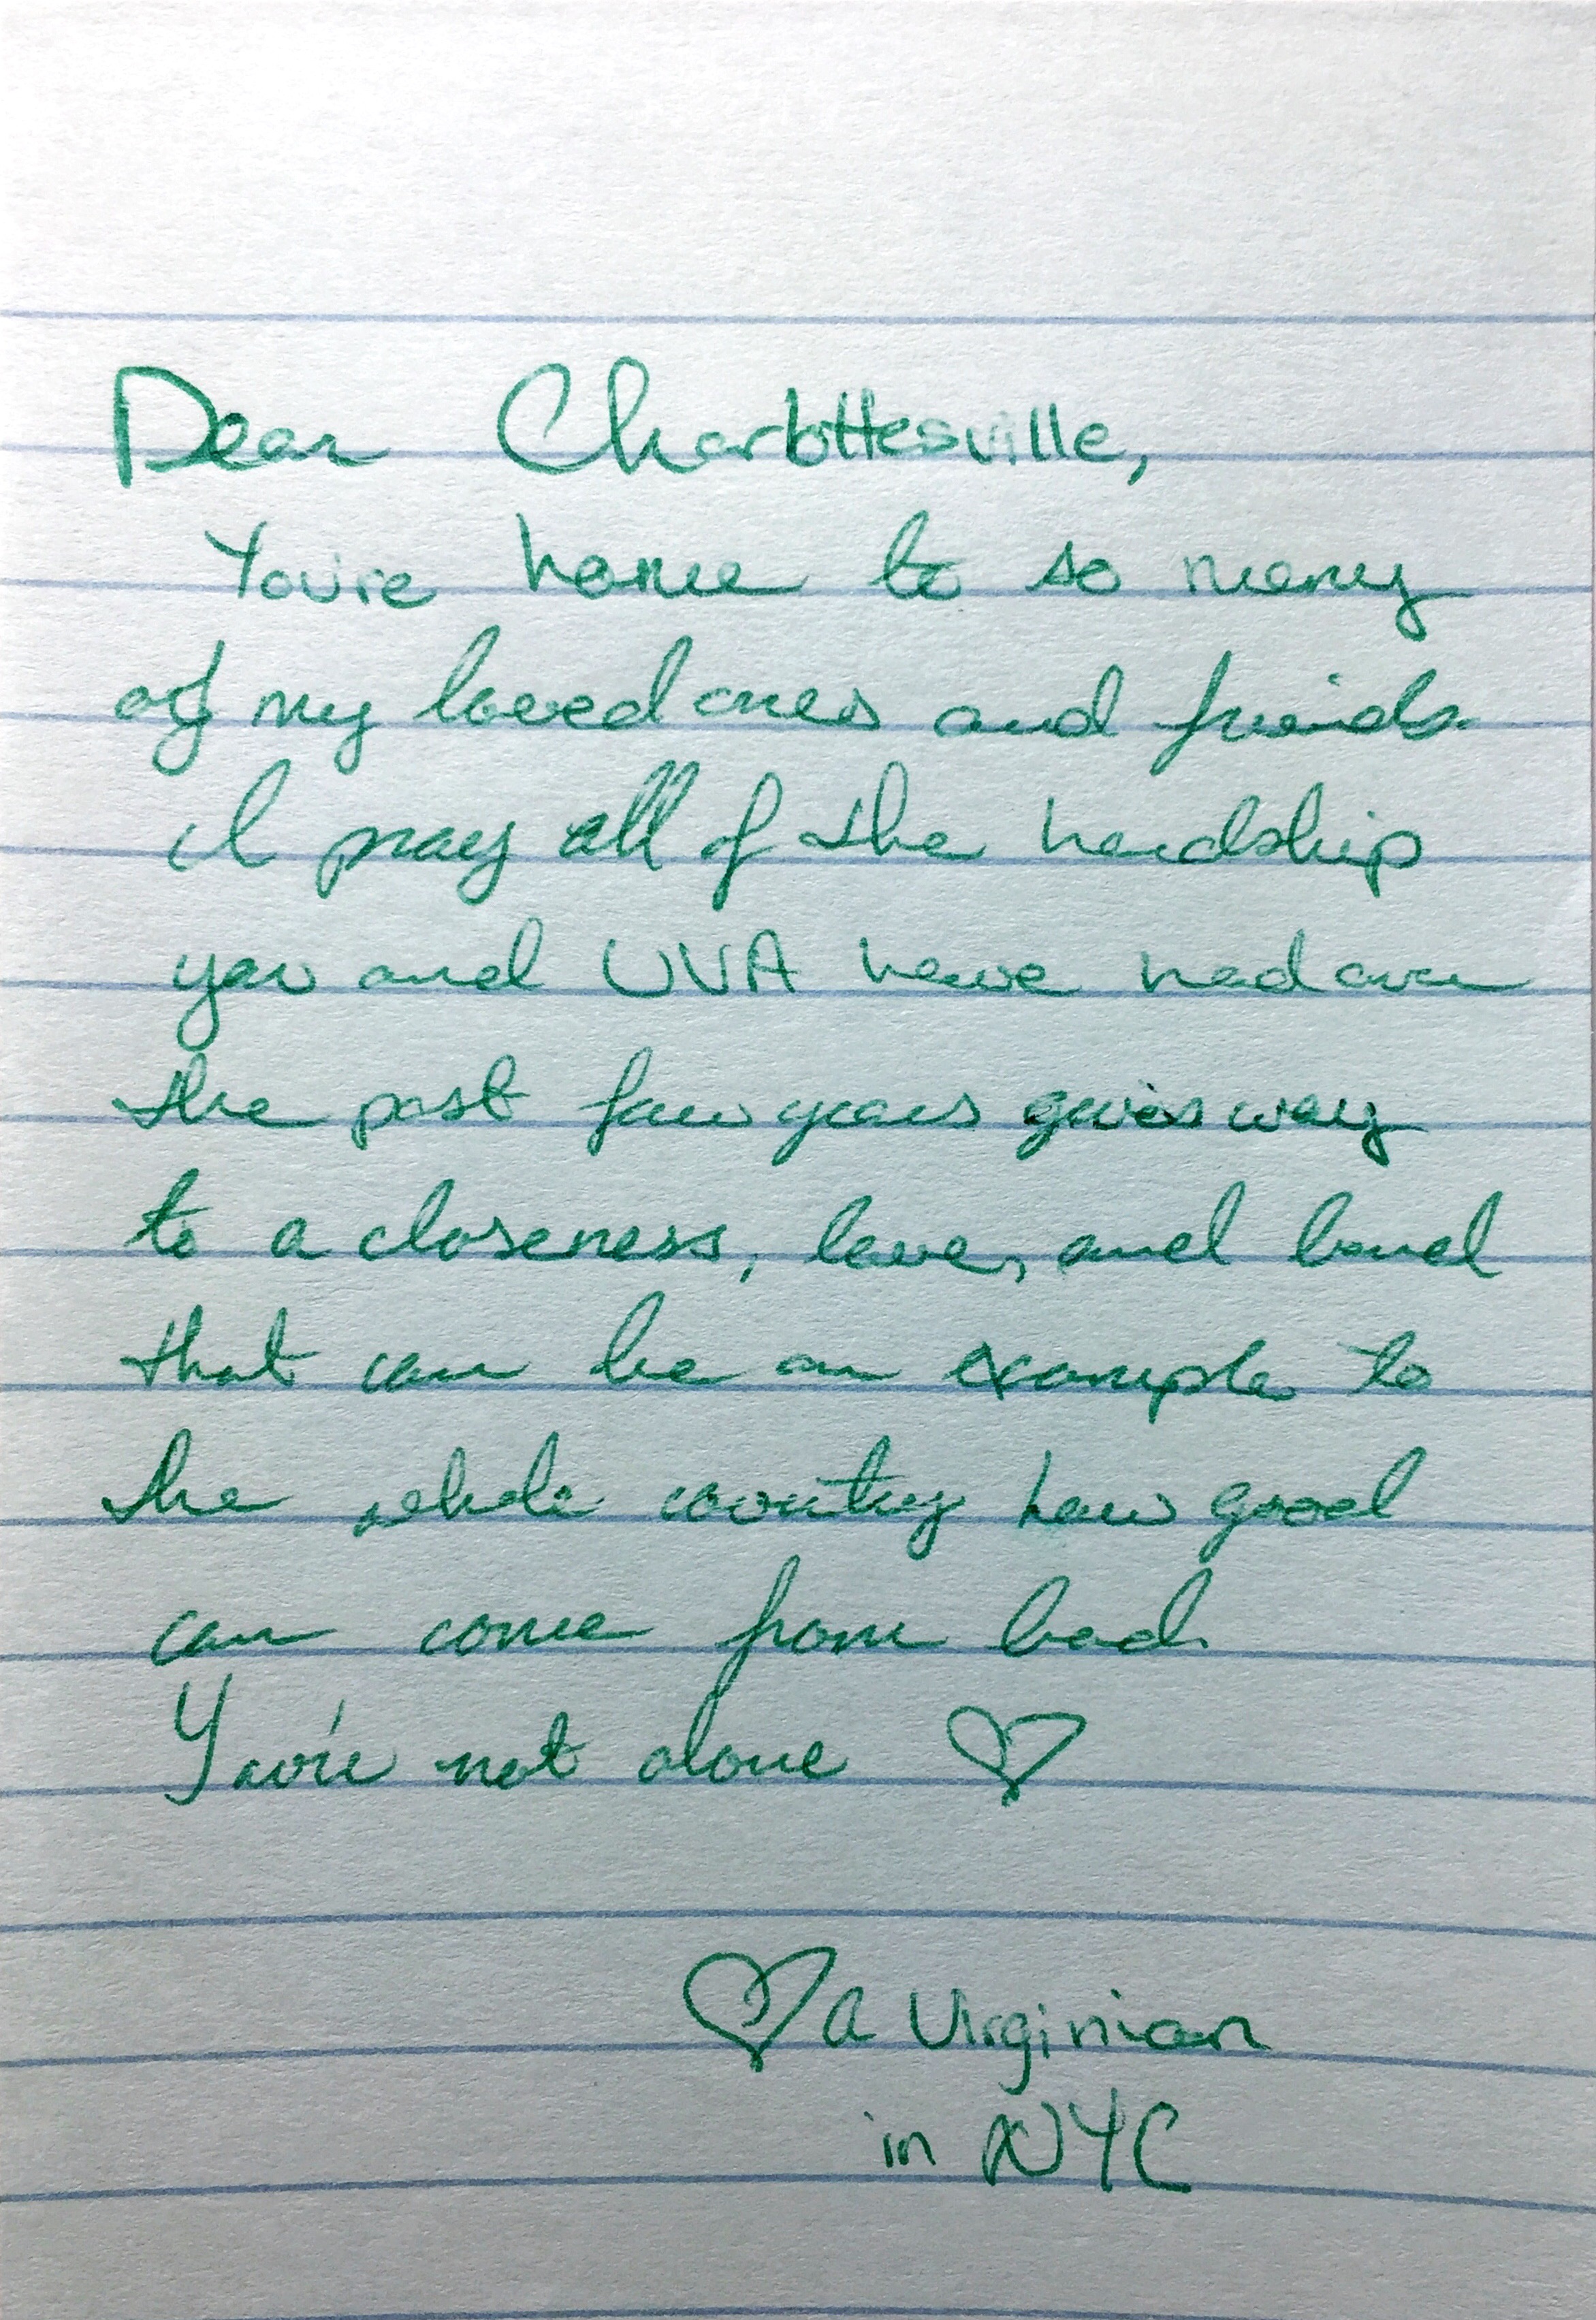 Dear Charlottesville,
You're home to so many
of my loved ones and friends.
I pray all of the hardship
you and UVA have had over
the past few years gives way
to a closeness, love, and bond
that can be an example to
the whole country how good
can come from bad.
You're not alone ♡
♡ a Virginian
in NYC